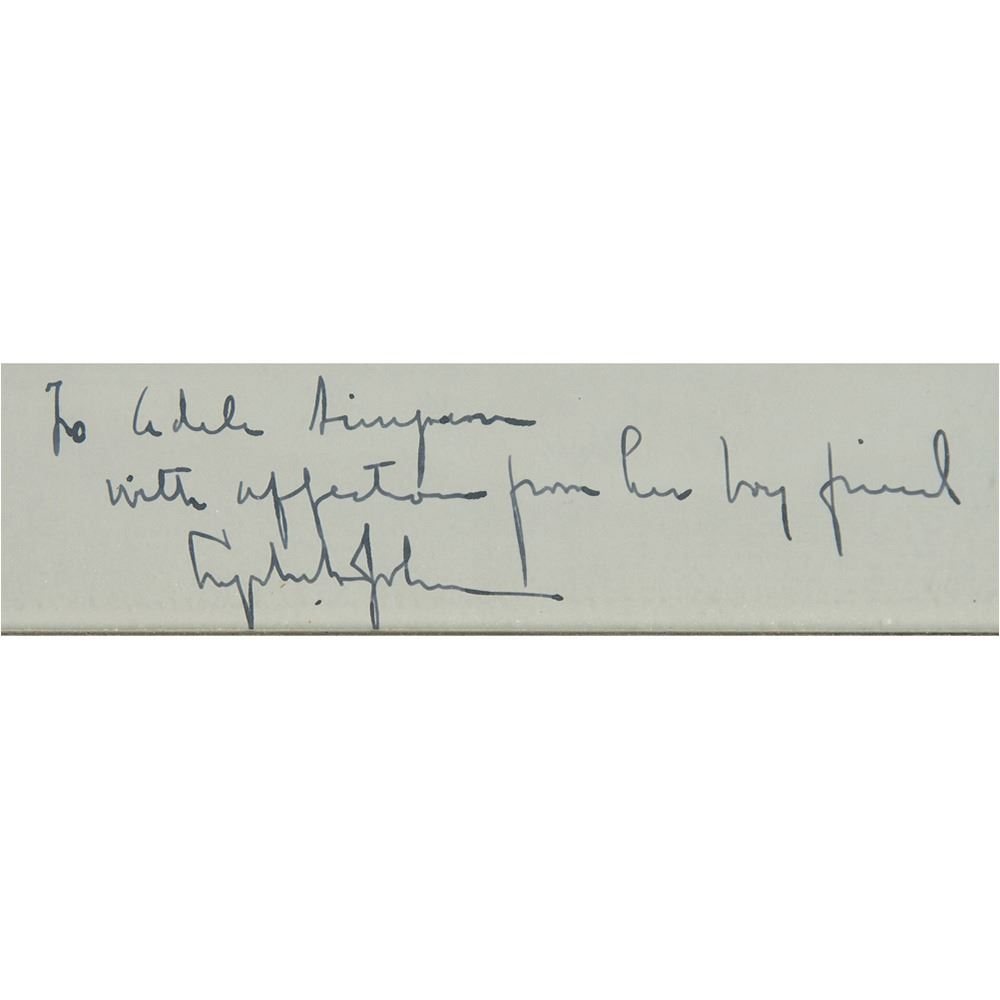 To Adele Simpson
with affection from her boy friend